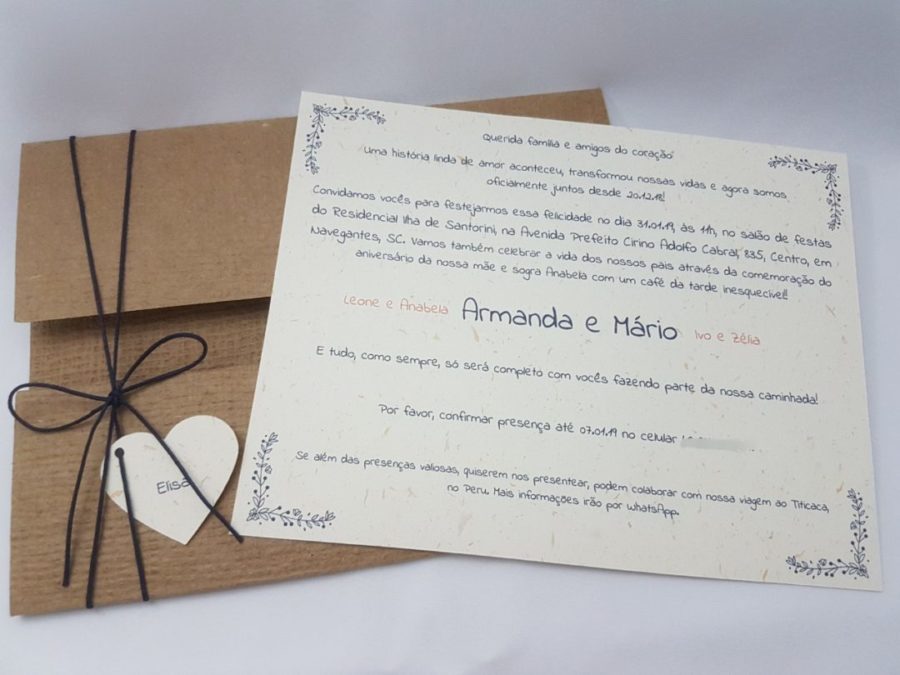 Querida família e amigos do coração
Uma história linda de amor aconteceu, transformou nossas vidas e agora somos
oficialmente juntos desde 20.12.18!
Convidamos vocês para festejarmos essa felicidade no dia 31.01.19, às 11h, no salão de festas
do Residencial Ilha de Santorini, na Avenida Prefeito Cirino Adolfo Cabral, 835, Centro, em
Navegantes, SC. Vamos também celebrar a vida dos nossos pais através da comemoração do
aniversário da nossa mãe e sogra Anabela com um café da tarde inesquecível!
Leone e Anabela Armanda e Mário Ivo e Zélia
E tudo, como sempre, só será completo com vocês fazendo parte da nossa caminhada!
Por favor, confirmar presença até 07.01.19 no celular
Se além das presenças valiosas, quiserem nos presentear, podem colaborar com nossa viagem ao Titicaca,
no Peru. Mais informações irão por whatsApp.
Elisa